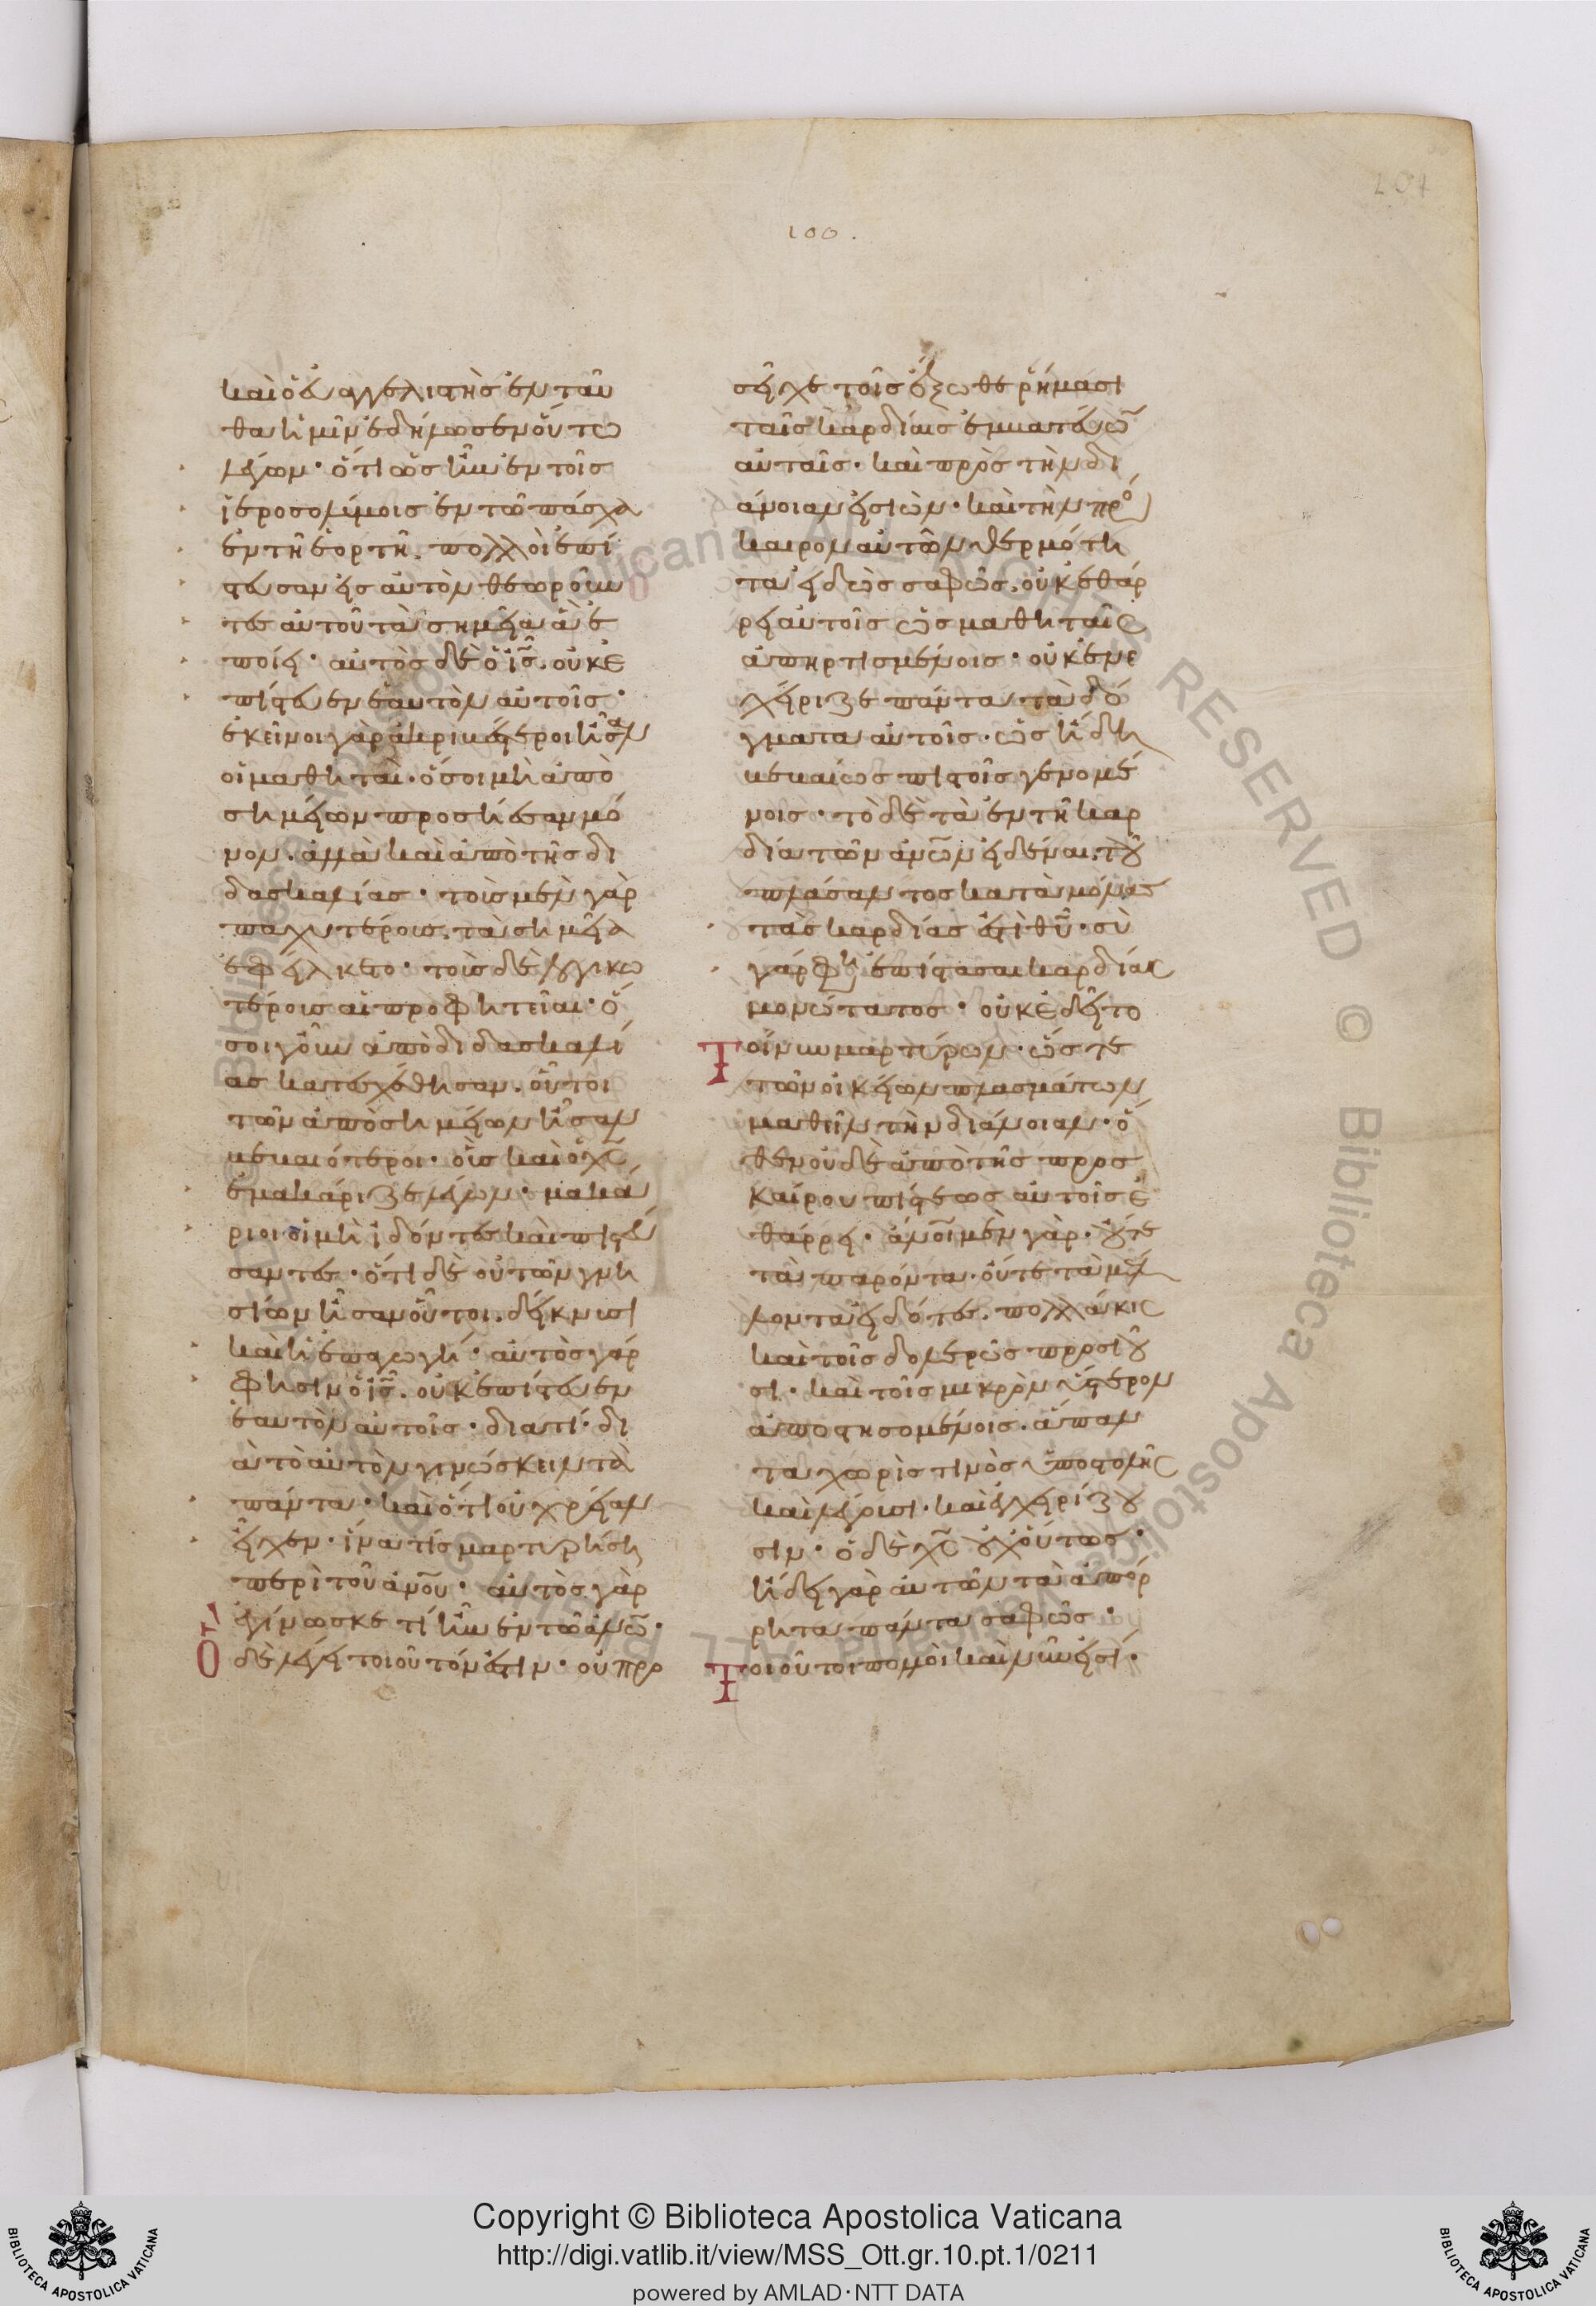 207
100.
καὶ ὁ εὐαγγελιστὴς ἐνταῦ
θα ἡμῖν ἐδήλωσεν οὕτω
λέγων· ὅτι ὡς ἦν ἐν τοῖς
ἱεροσολύμοις ἐν τῶ πάσχα
ἐν τῆ ἑορτῆ. πολλοὶ ἐπί
στευσαν εἰς αὐτὸν θεωροῦν
τες αὐτοῦ τὰ σημεῖα ἃ ἐ
ποίει· αὐτὸς δὲ ὁ ἰς. οὐκ ἐ
πίστευεν ἑαυτὸν αὐτοῖς·
ἐκεῖνοι γὰρ ἀκριβέστεροι ἦσαν
οἱ μαθηταί· ὅσοι μὴ ἀπὸ
σημείων προσήεσαν μό
νον. ἀλλὰ καὶ ἀπὸ τῆς δι
δασκαλίας· τοὺς μὲν γὰρ
παχυτέρους. τὰ σημεῖα
ἐφείλκετο· τοὺς δὲ λογικω
τέρους αἱ προφητεῖαι· ὅ
σοι γοῦν ἀπὸ διδασκαλί
ας κατεσχέθησαν. οὗτοι
τῶν ἀπὸ σημείων ἦσαν
βεβαιότεροι· οὓς καὶ ὁ χς
ἐμακάριζε λέγων· μακά
ριοι οἱ μὴ ἰδόντες καὶ πιστεύ
σαντες· ὅτι δὲ οὐ τῶν γνη
σίων ἦσαν οὗτοι. δείκνυσι
καὶ ἡ ἐπαγωγή· αὐτὸς γάρ
φησιν ὁ ἰς. οὐκ ἐπίστευεν
ἑαυτὸν αὐτοῖς· διατί· δι
ὰ τὸ αὐτὸν γινώσκειν τὰ
πάντα· καὶ ὅτι οὐ χρείαν
εἶχεν· ἵνα τίς μαρτυρήση
περὶ τοῦ ἀνου· αὐτὸς γὰρ
ἐγίνωσκε τί ἦν ἐν τῶ ἀνω·
Ὃ δὲ λέγει τοιοῦτόν ἐστιν· οὐ προ
σεῖχε τοῖς ἔξωθε ῥήμασι
ταῖς καρδίαις ἐμβατεύω
αὐταῖς· καὶ πρὸς τὴν δι
άνοιαν εἰσιὼν· καὶ τὴν πρό
καιρον αὐτῶν θερμότη
τα εἰδὼς σαφῶς. οὐκ ἐθάρ
ρει αὐτοῖς ὡς μαθηταῖς
ἀπηρτισμένοις· οὐκ ἐνε
χείριζε πάντα τὰ δό
γματα αὐτοῖς· ὡς ἤδη
βεβαίως πιστοῖς γενομέ
νοις· τὸ δὲ τὰ ἐν τῆ καρ
δία τῶν ἀνων εἰδέναι. τοῦ
πλάσαντος καταμόνας
τὰς καρδίας ἐστὶ θυ· σὺ
γάρ φη ἐπίστασαι καρδίας
μονώτατος· οὐκ ἐδεῖτο
Τοίνυν μαρτύρων· ὥστε
τῶν οἰκείων πλασμάτων
μαθεῖν τὴν διάνοιαν· ὅ
θεν οὐδὲ ἀπὸ τῆς προσ
καίρου πίστεως αὐτοῖς ἐ
θάρρει· ἀνοι μὲν γὰρ. οὔτε
τὰ παρόντα. οὔτε τὰ μέλ
λοντα εἰδότες. πολλάκις
καὶ τοῖς δολερῶς προσιοῦ
σι· καὶ τοῖς μικρὸν ὕστερον
ἀποστησομένοις. ἅπαν
τα χωρὶς τινὸς ὑποστολῆς
καὶ λέγουσι· καὶ ἐγχειρίζου
σιν· ὁ δὲ χς οὐχ οὕτως·
ἤδει γὰρ αὐτῶν τὰ ἀπόρ
ρητα πάντα σαφῶς·
Τοιοῦτοι πολλοὶ καὶ νῦν εἰσί·
Copyright © Biblioteca Apostolica Vaticana
http://digi.vatlib.it/view/MSS_Ott.gr.10.pt.1/0211
powered by AMLAD·NTT DATA
BIBLIOTECA APOSTOLICA VATICANA
BIBLIOTECA APOSTOLICA VATICANA